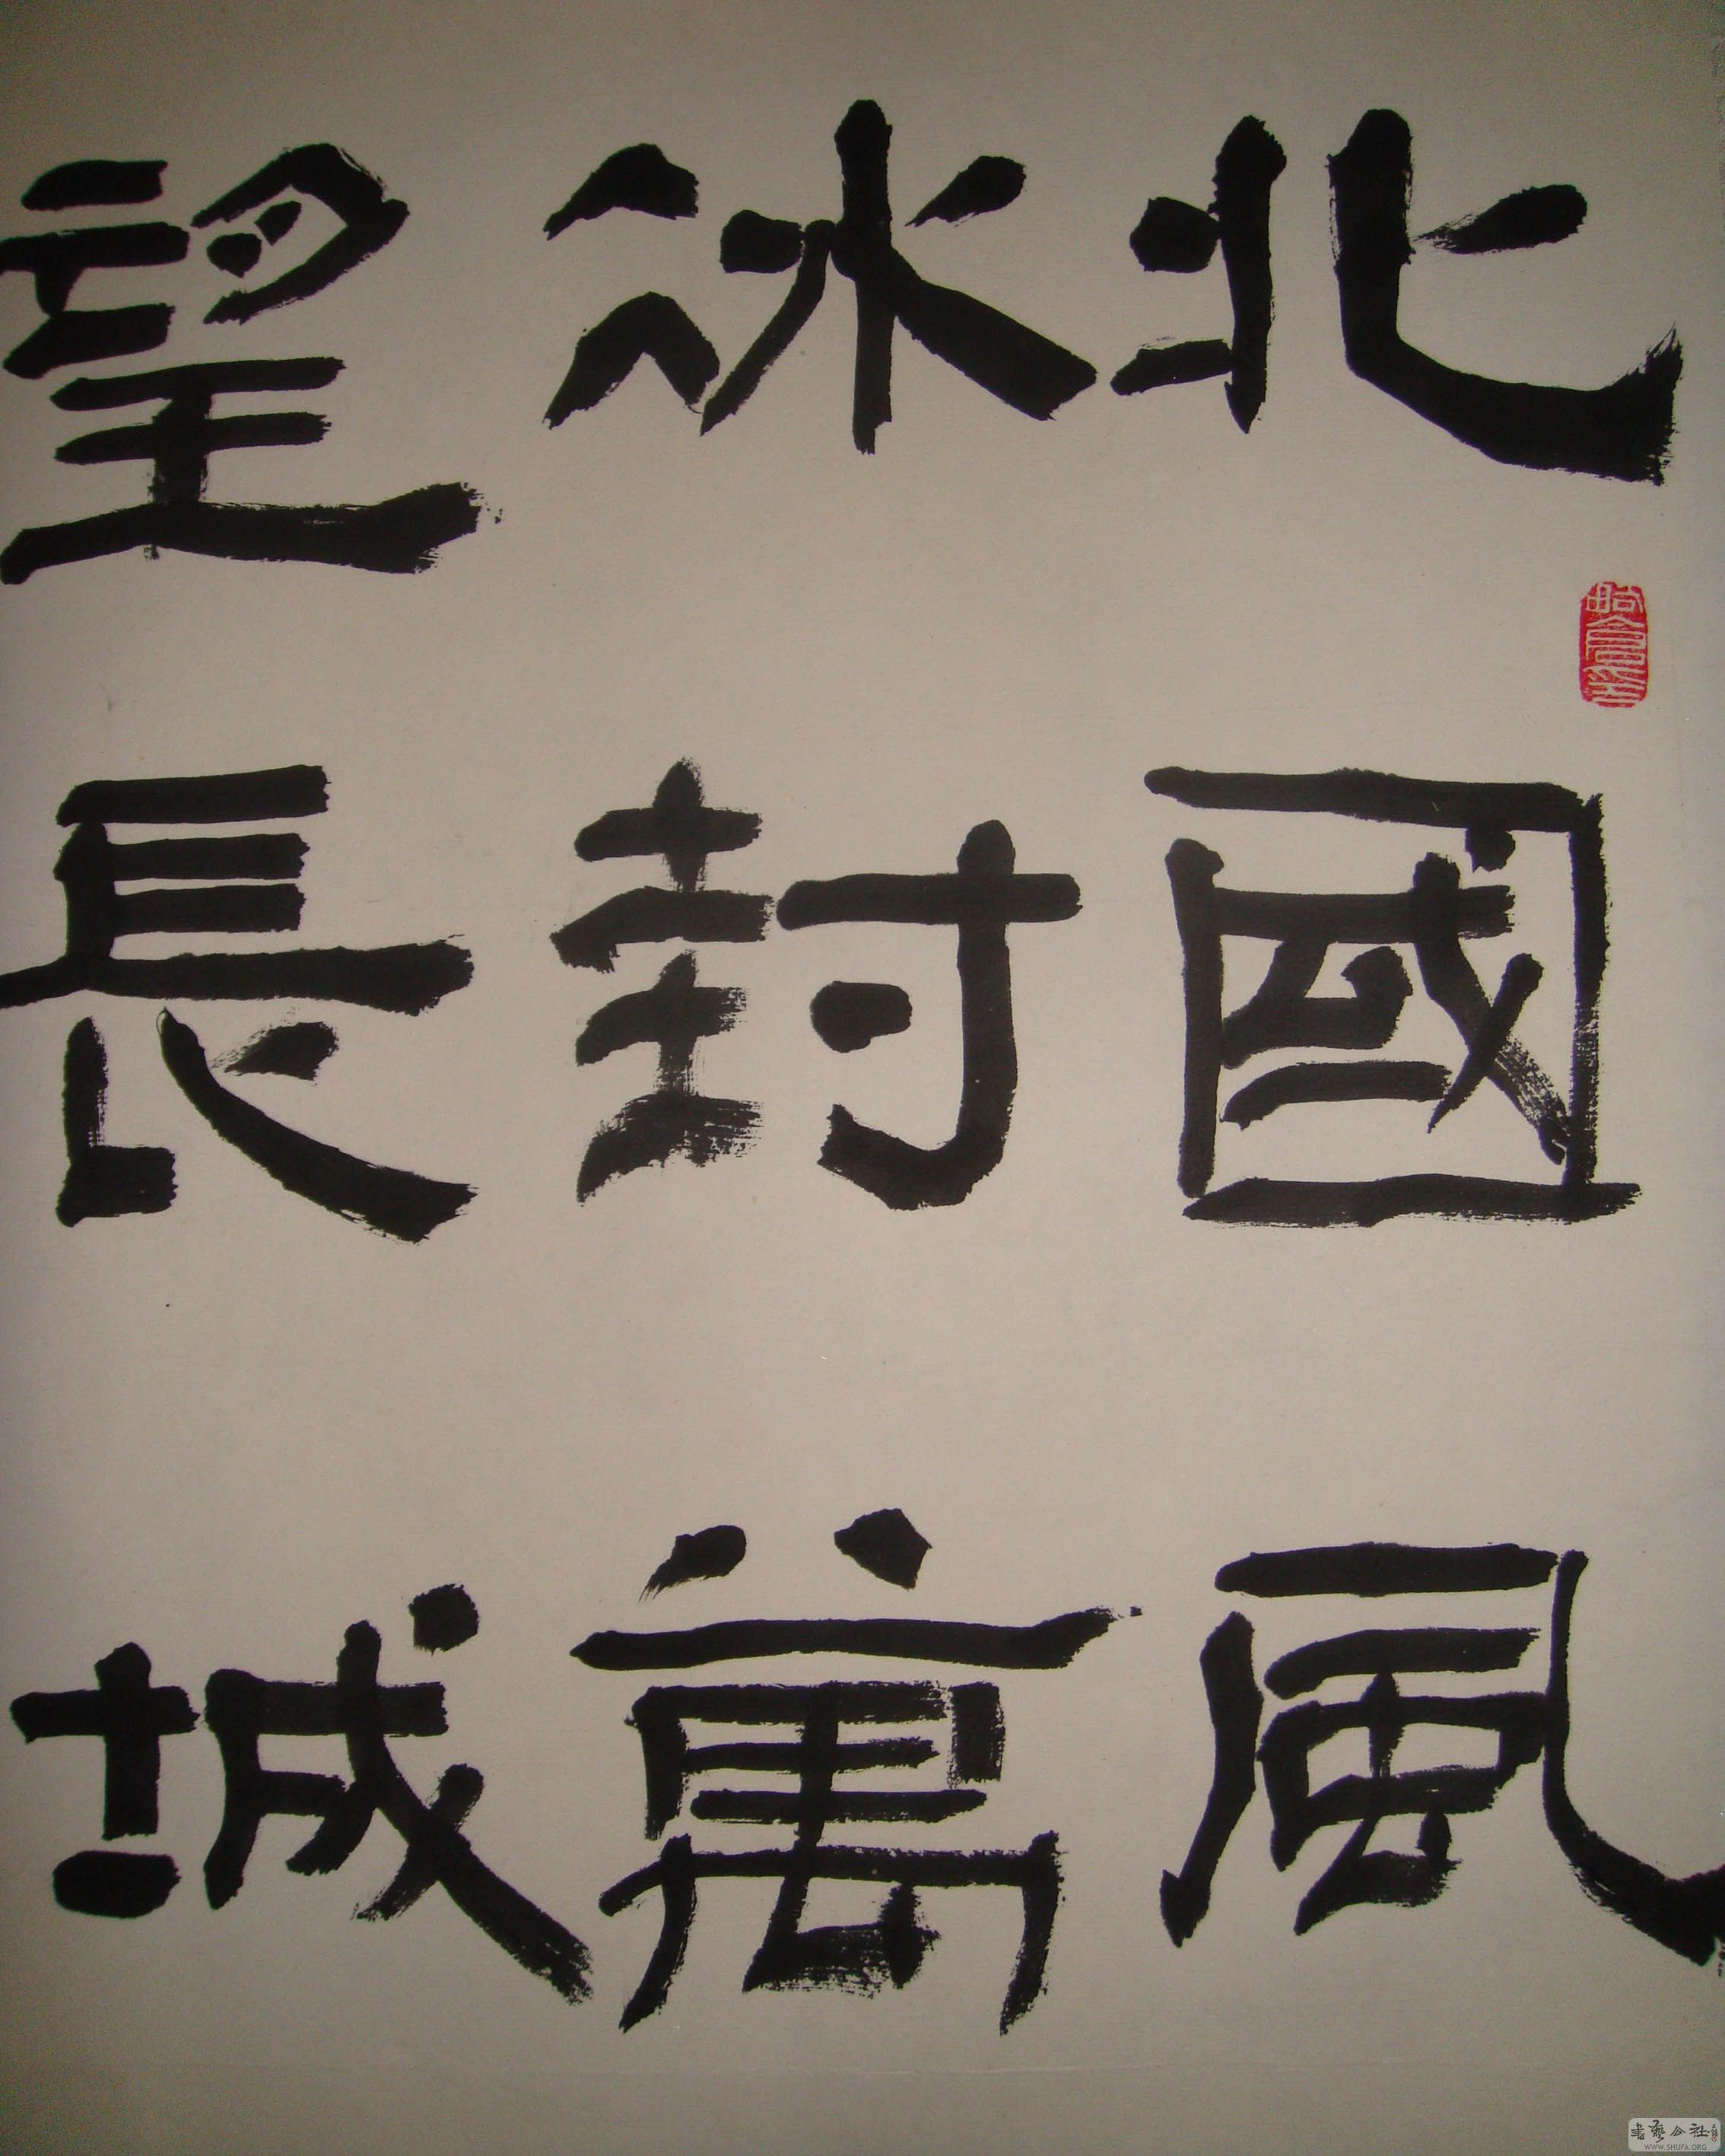 北國風
冰封萬
望長城
書藝公社
WWW.SHUFA.ORG